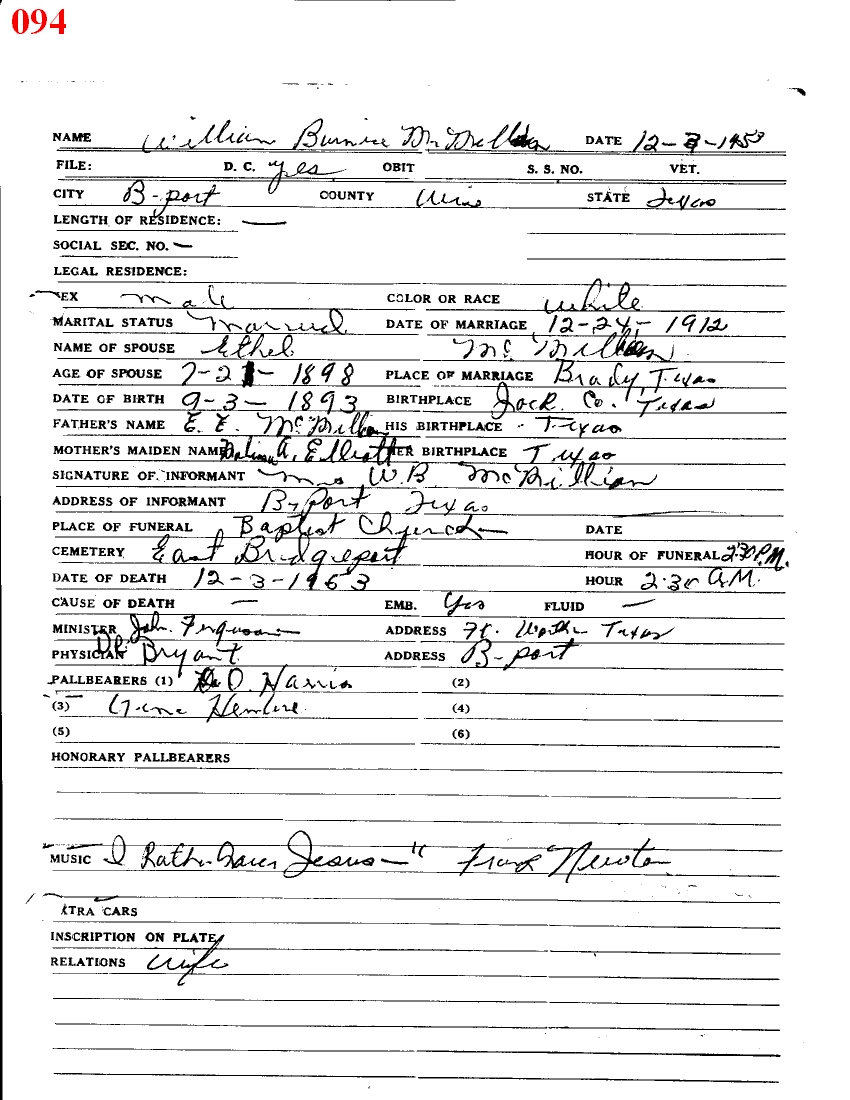 094
NAME William Burnice McMillian DATE 12-3-1953
FILE: D. C. yes OBIT S. S. NO. VET.
CITY B-port COUNTY Wise STATE Texas
LENGTH OF RESIDENCE: —
SOCIAL SEC. NO. —
LEGAL RESIDENCE:
SEX male COLOR OR RACE white
MARITAL STATUS Married DATE OF MARRIAGE 12-24-1912
NAME OF SPOUSE Ethel McMillian
AGE OF SPOUSE 7-21-1898 PLACE OF MARRIAGE Brady, Texas
DATE OF BIRTH 9-3-1893 BIRTHPLACE Jack Co. Texas
FATHER'S NAME E. E. McMillian HIS BIRTHPLACE Texas
MOTHER'S MAIDEN NAME A. Elliott HER BIRTHPLACE Texas
SIGNATURE OF INFORMANT Mrs W.B. McMillian
ADDRESS OF INFORMANT B-Port Texas
PLACE OF FUNERAL Baptist Church DATE
CEMETERY East Bridgeport HOUR OF FUNERAL 2:30 P.M.
DATE OF DEATH 12-3-1963 HOUR 2:30 A.M.
CAUSE OF DEATH — EMB. Yes FLUID —
MINISTER John Ferguson ADDRESS Ft. Worth Texas
PHYSICIAN Dr. Bryant ADDRESS B-port
PALLBEARERS (1) O. Harris (2)
(3) Gene (4)
(5) (6)
HONORARY PALLBEARERS
MUSIC I Rather Have Jesus —" Frank Newton
XTRA CARS
INSCRIPTION ON PLATE
RELATIONS wife